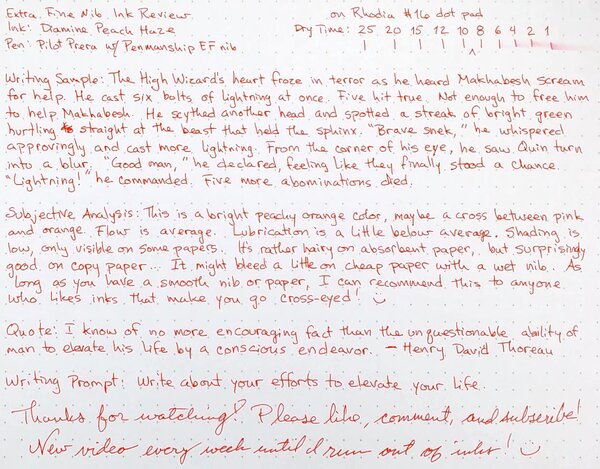 Extra Fine Nib Ink Review on Rhodia #16 dot pad
Ink: Diamine Peach Haze Dry Time: 25 20 15 12 10 8 6 4 2 1
Pen: Pilot Prera w/ Penmanship EF nib
Writing Sample: The High Wizard's heart froze in terror as he heard Makhabesh scream
for help. He cast six bolts of lightning at once. Five hit true. Not enough to free him
to help Makhabesh. He scythed another head and spotted a streak of bright green
hurtling straight at the beast that held the sphinx. "Brave snek," he whispered
approvingly and cast more lightning. From the corner of his eye, he saw Quin turn
into a blur. "Good man," he declared, feeling like they finally stood a chance.
"Lightning!" he commanded. Five more abominations died.
Subjective Analysis: This is a bright peachy orange color, maybe a cross between pink
and orange. Flow is average. Lubrication is a little below average. Shading is
low, only visible on some papers. It's rather hairy on absorbent paper, but surprisingly
good on copy paper... It might bleed a little on cheap paper with a wet nib. As
long as you have a smooth nib or paper, I can recommend this to anyone
who likes inks that make you go cross-eyed!
Quote: I know of no more encouraging fact than the unquestionable ability of
man to elevate his life by a conscious endeavor. - Henry David Thoreau
Writing Prompt: Write about your efforts to elevate your life.
Thanks for watching! Please like, comment, and subscribe!
New video every week until I run out of inks!